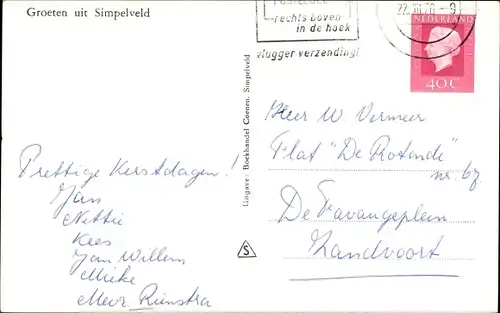 Groeten uit Simpelveld
rechts boven
in de hoek
vlugger verzending!
22.XII.76
NEDERLAND
40c
Uitgave: Boekhandel Coenen, Simpelveld
S
Prettige Kerstdagen!
Jan
Nettie
Kees
Jan Willem
Mieke
Mevr. Rienstra
Heer W Vermeer
Flat "De Rotonde"
nr 67
De Favaugeplein
Zandvoort